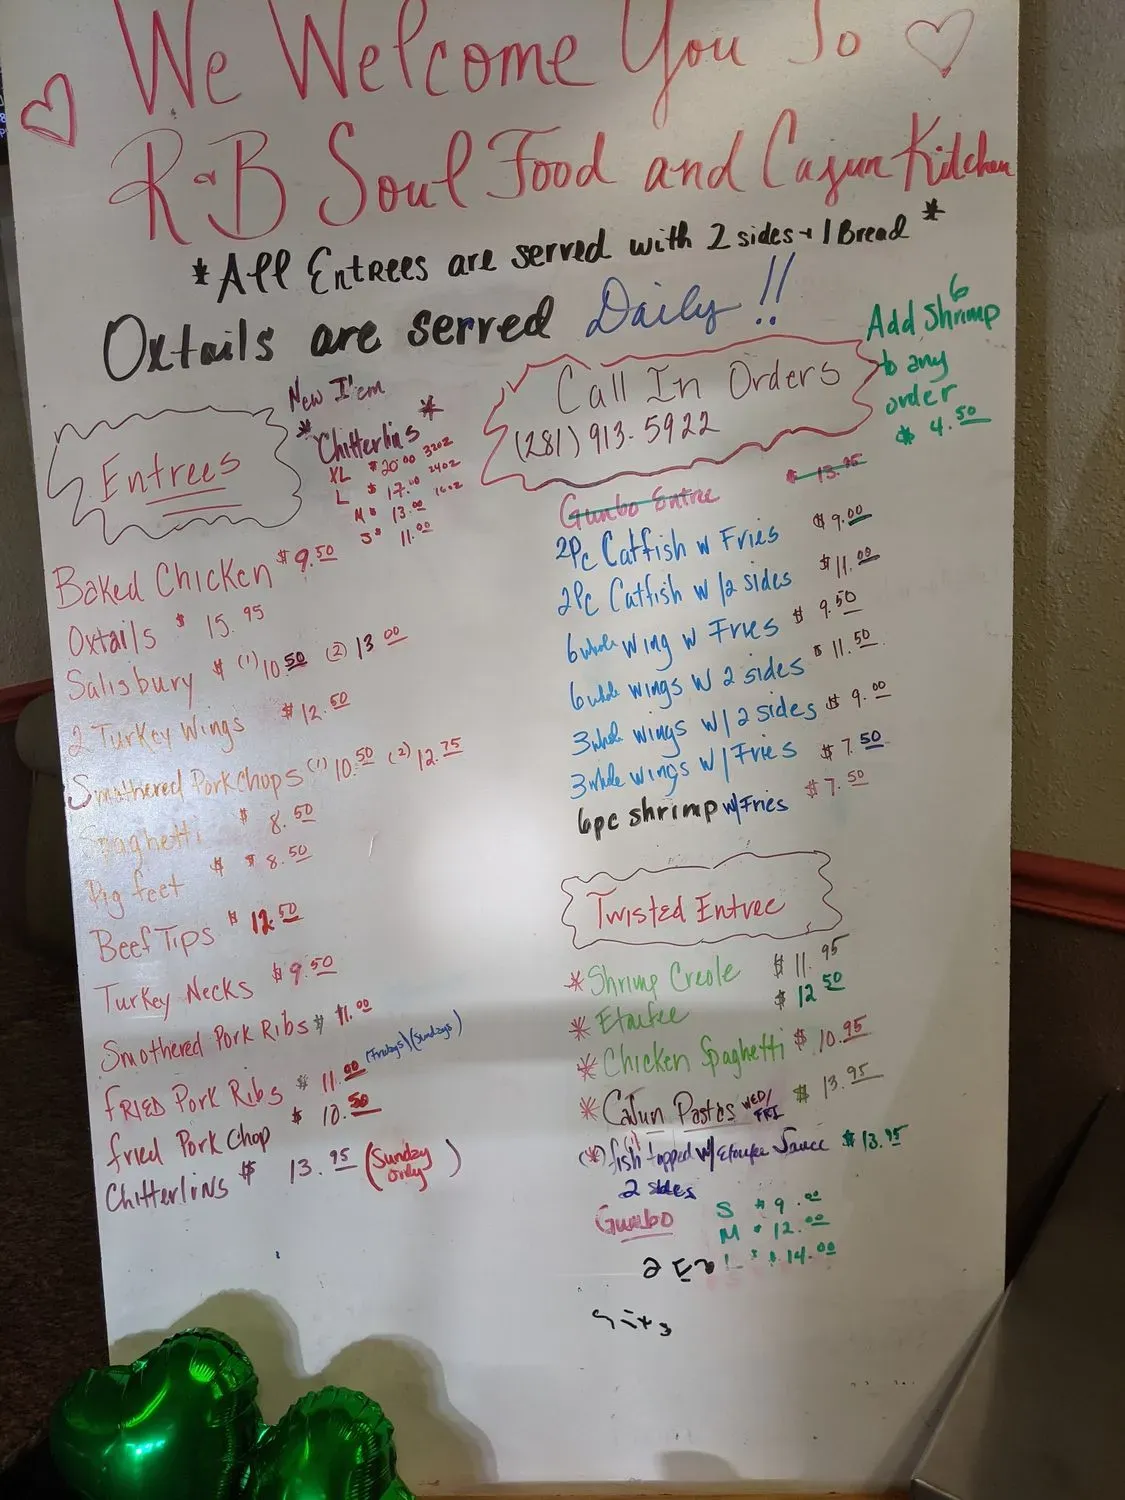 We Welcome You To
R&B Soul Food and Cajun Kitchen
*All Entrees are served with 2 sides + 1 Bread *
Oxtails are served Daily!!
Add 6 Shrimp
to any
order
$ 4.50
Call In Orders
(281) 913.5922
New I'em
* Chitterlins *
XL $20.00 32oz
L $ 17.00 24oz
M $ 13.00 16oz
S $ 11.00
Entrees
Baked Chicken $9.50
Oxtails $ 15.95
Salisbury $ (1) 10.50 (2) 13.00
2 Turkey Wings $12.50
Smothered Porkchops (1) 10.50 (2) 12.75
Spaghetti $ 8.50
Pig feet $ $ 8.50
Beef Tips $ 12.50
Turkey Necks $9.50
Smothered Pork Ribs $ 11.00
fried Pork Ribs $ 11.00 (Fridays) (Sundays)
fried Pork Chop $ 10.50
Chitterlins $ 13.95 (Sunday only)
Gumbo Entree $ 13.95
2Pc Catfish w Fries $9.00
2Pc Catfish w/2 sides $11.00
6 whole wing w Fries $ 9.50
6 whole wings w 2 sides $ 11.50
3 whole wings w/2 sides $ 9.00
3 whole wings w/Fries $ 7.50
6pc shrimp w/Fries $ 7.50
Twisted Entree
*Shrimp Creole $ 11.95
* Etoufee $ 12.50
* Chicken Spaghetti $ 10.95
* Cajun Pastas WED/FRI $ 13.95
(*) fish topped w/ Etoufee Sauce $13.95
2 sides
Gumbo S $ 9.00
M $ 12.00
L $ 14.00